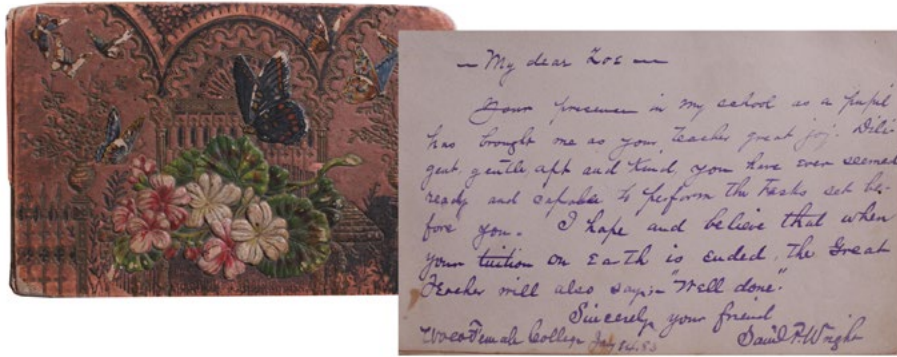 — My dear Zoe —
Your presence in my school as a pupil
has brought me as your teacher great joy. Dili-
gent, gentle, apt and kind, you have ever seemed
ready and capable to perform the tasks set be-
fore you. I hope and believe that when
your tuition on Earth is ended, the Great
Teacher will also say;- "Well done."
Sincerely your friend
Waco Female College July 14. 83
P. Wright